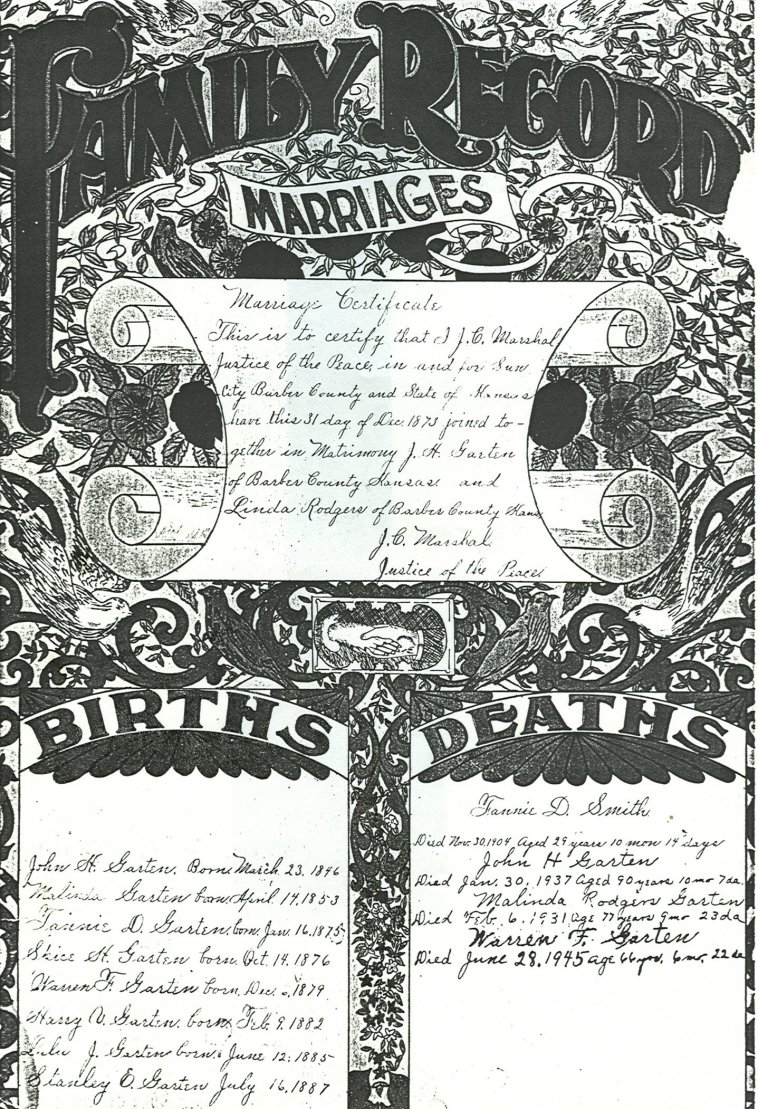 FAMILY RECORD
MARRIAGES
Marriage Certificate
This is to certify that I J.C. Marshal
Justice of the Peace, in and for Sun
City Barber County and State of Kansas
have this 31 day of Dec. 1873 joined to-
gether in Matrimony J. H. Garten
of Barber County Kansas and
Linda Rodgers of Barber County Kans
J.C. Marshal
Justice of the Peace
BIRTHS
John H. Garten. Born March 23, 1846
Malinda Garten born April 14, 1853
Fannie D. Garten, born, Jan. 16, 1875
Skice H. Garten born, Oct. 14. 1876
Warren F Garten born, Dec. 1879
Harry V. Garten, born Feb 9, 1882
Lulu J. Garten born June 12, 1885
Stanley E. Garten July 16, 1887
DEATHS
Fannie D. Smith
Died Nov. 30, 1904 Aged 29 years 10 mon 14 days
John H Garten
Died Jan. 30, 1937 Aged 90 years 10 mo 7 da.
Malinda Rodgers Garten
Died Feb. 6, 1931 age 77 years 9 mo 23 da
Warren F. Garten
Died June 28, 1945 age 66 yrs. 6 mo. 22 da